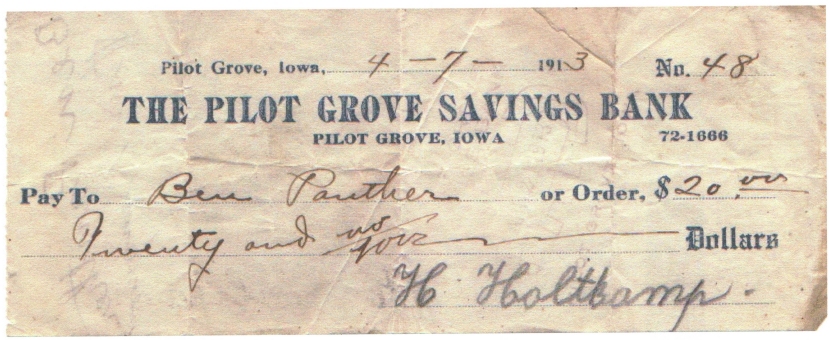 Pilot Grove, Iowa, 4-7- 1913 No. 48
THE PILOT GROVE SAVINGS BANK
PILOT GROVE, IOWA 72-1666
Pay To Ben Panther or Order, $20.00
Twenty and no/100 Dollars
H. Holtkamp.